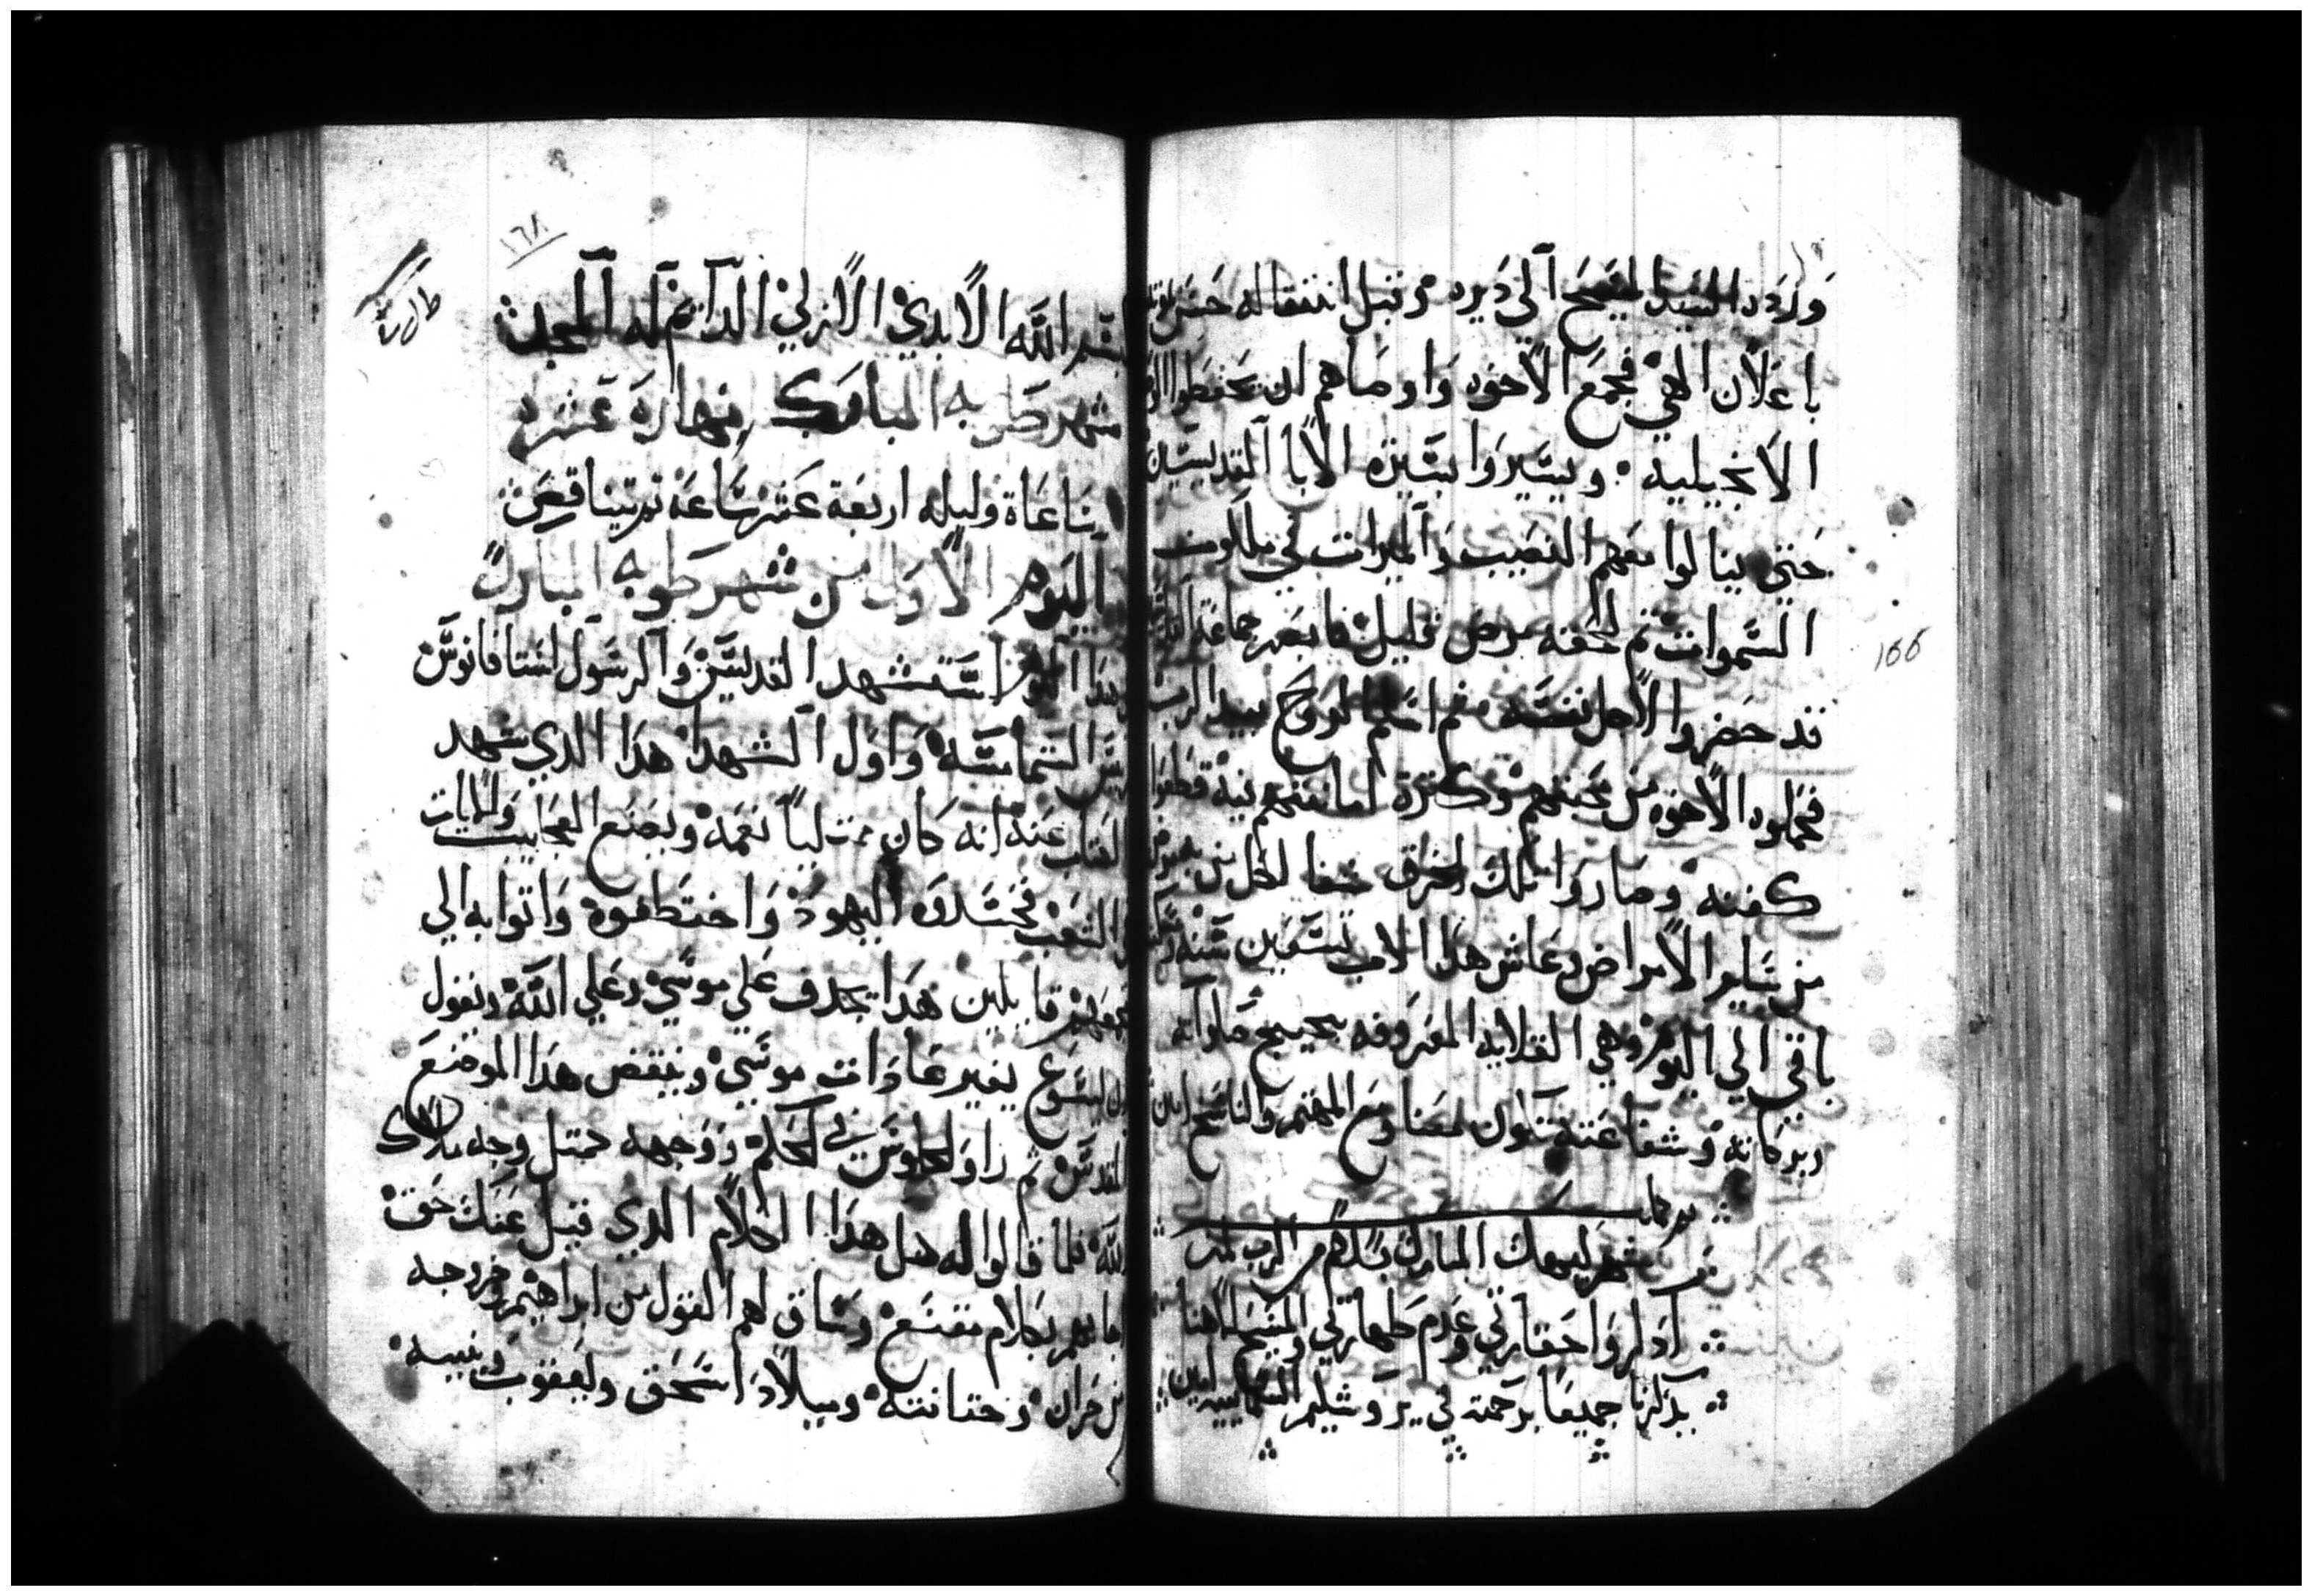 ورده السيد المسيح الي ديره وقبل انتقاله
باعلان الهي فجمع الاخوه واوصاهم ان يحفظوا
الانجيليه ويسيروا بسيرة الابا القديسين
حتي ينالوا معهم النصيب والميرات في ملكوت
السموات ثم لحقه مرض قليل جماعة
قد حضروا لاجل نفسه ثم اسلم الروح بيد الرب
فحملوه الاخوه من محبتهم وكثرة امانتهم فيه قطعوا
كفنه وصاروا تلك الخرق شفا لكل من به مرض
من ساير الامراض وعاش هذا الاب تسعين سنه
باقي الي اليوم وهي القلايه المعروفه بحيج صلواته
وبركاته وشفاعته تكون معنا ومع المهتم والناسخ امين
شهر كيهك المبارك بسلام من الرب امين
اذكروا حقارتي وعدم طهارتي والمسيح الاهنا
يذكرنا جميعا برحمته في يروشليم السماييه امين
166
١٦٨
بسم الله الابدي الازلي الدايم له المجد
شهر طوبه المبارك نهاره عشره
ساعاة وليله اربعة عشر ساعه
اليوم الاول من شهر طوبه المبارك
هذا اليوم استشهد القديس والرسول استافانوس
ريس الشمامسه واول الشهدا هذا الدي شهد
الكتاب عنه انه كان ممتلياً نعمه ويصنع العجايب والايات
في الشعب فحسدوه اليهود واختطفوه واتوا به الي
مجمعهم قايلين هذا يجدف علي موسي وعلي الله ويقول
ان ايسوع يغير عادات موسي وينقض هذا الموضع
المقدس ثم راو الجلوس في المحكمه ووجهه ممتل وجه ملاك
الله فلما قالوا له هل هذا الكلام الدي قيل عنك حق
اجابهم بكلام مقنع وساق لهم القول من ابراهيم وخروجه
من حران وختانته وميلاد اسحق ويعقوب وبنيه